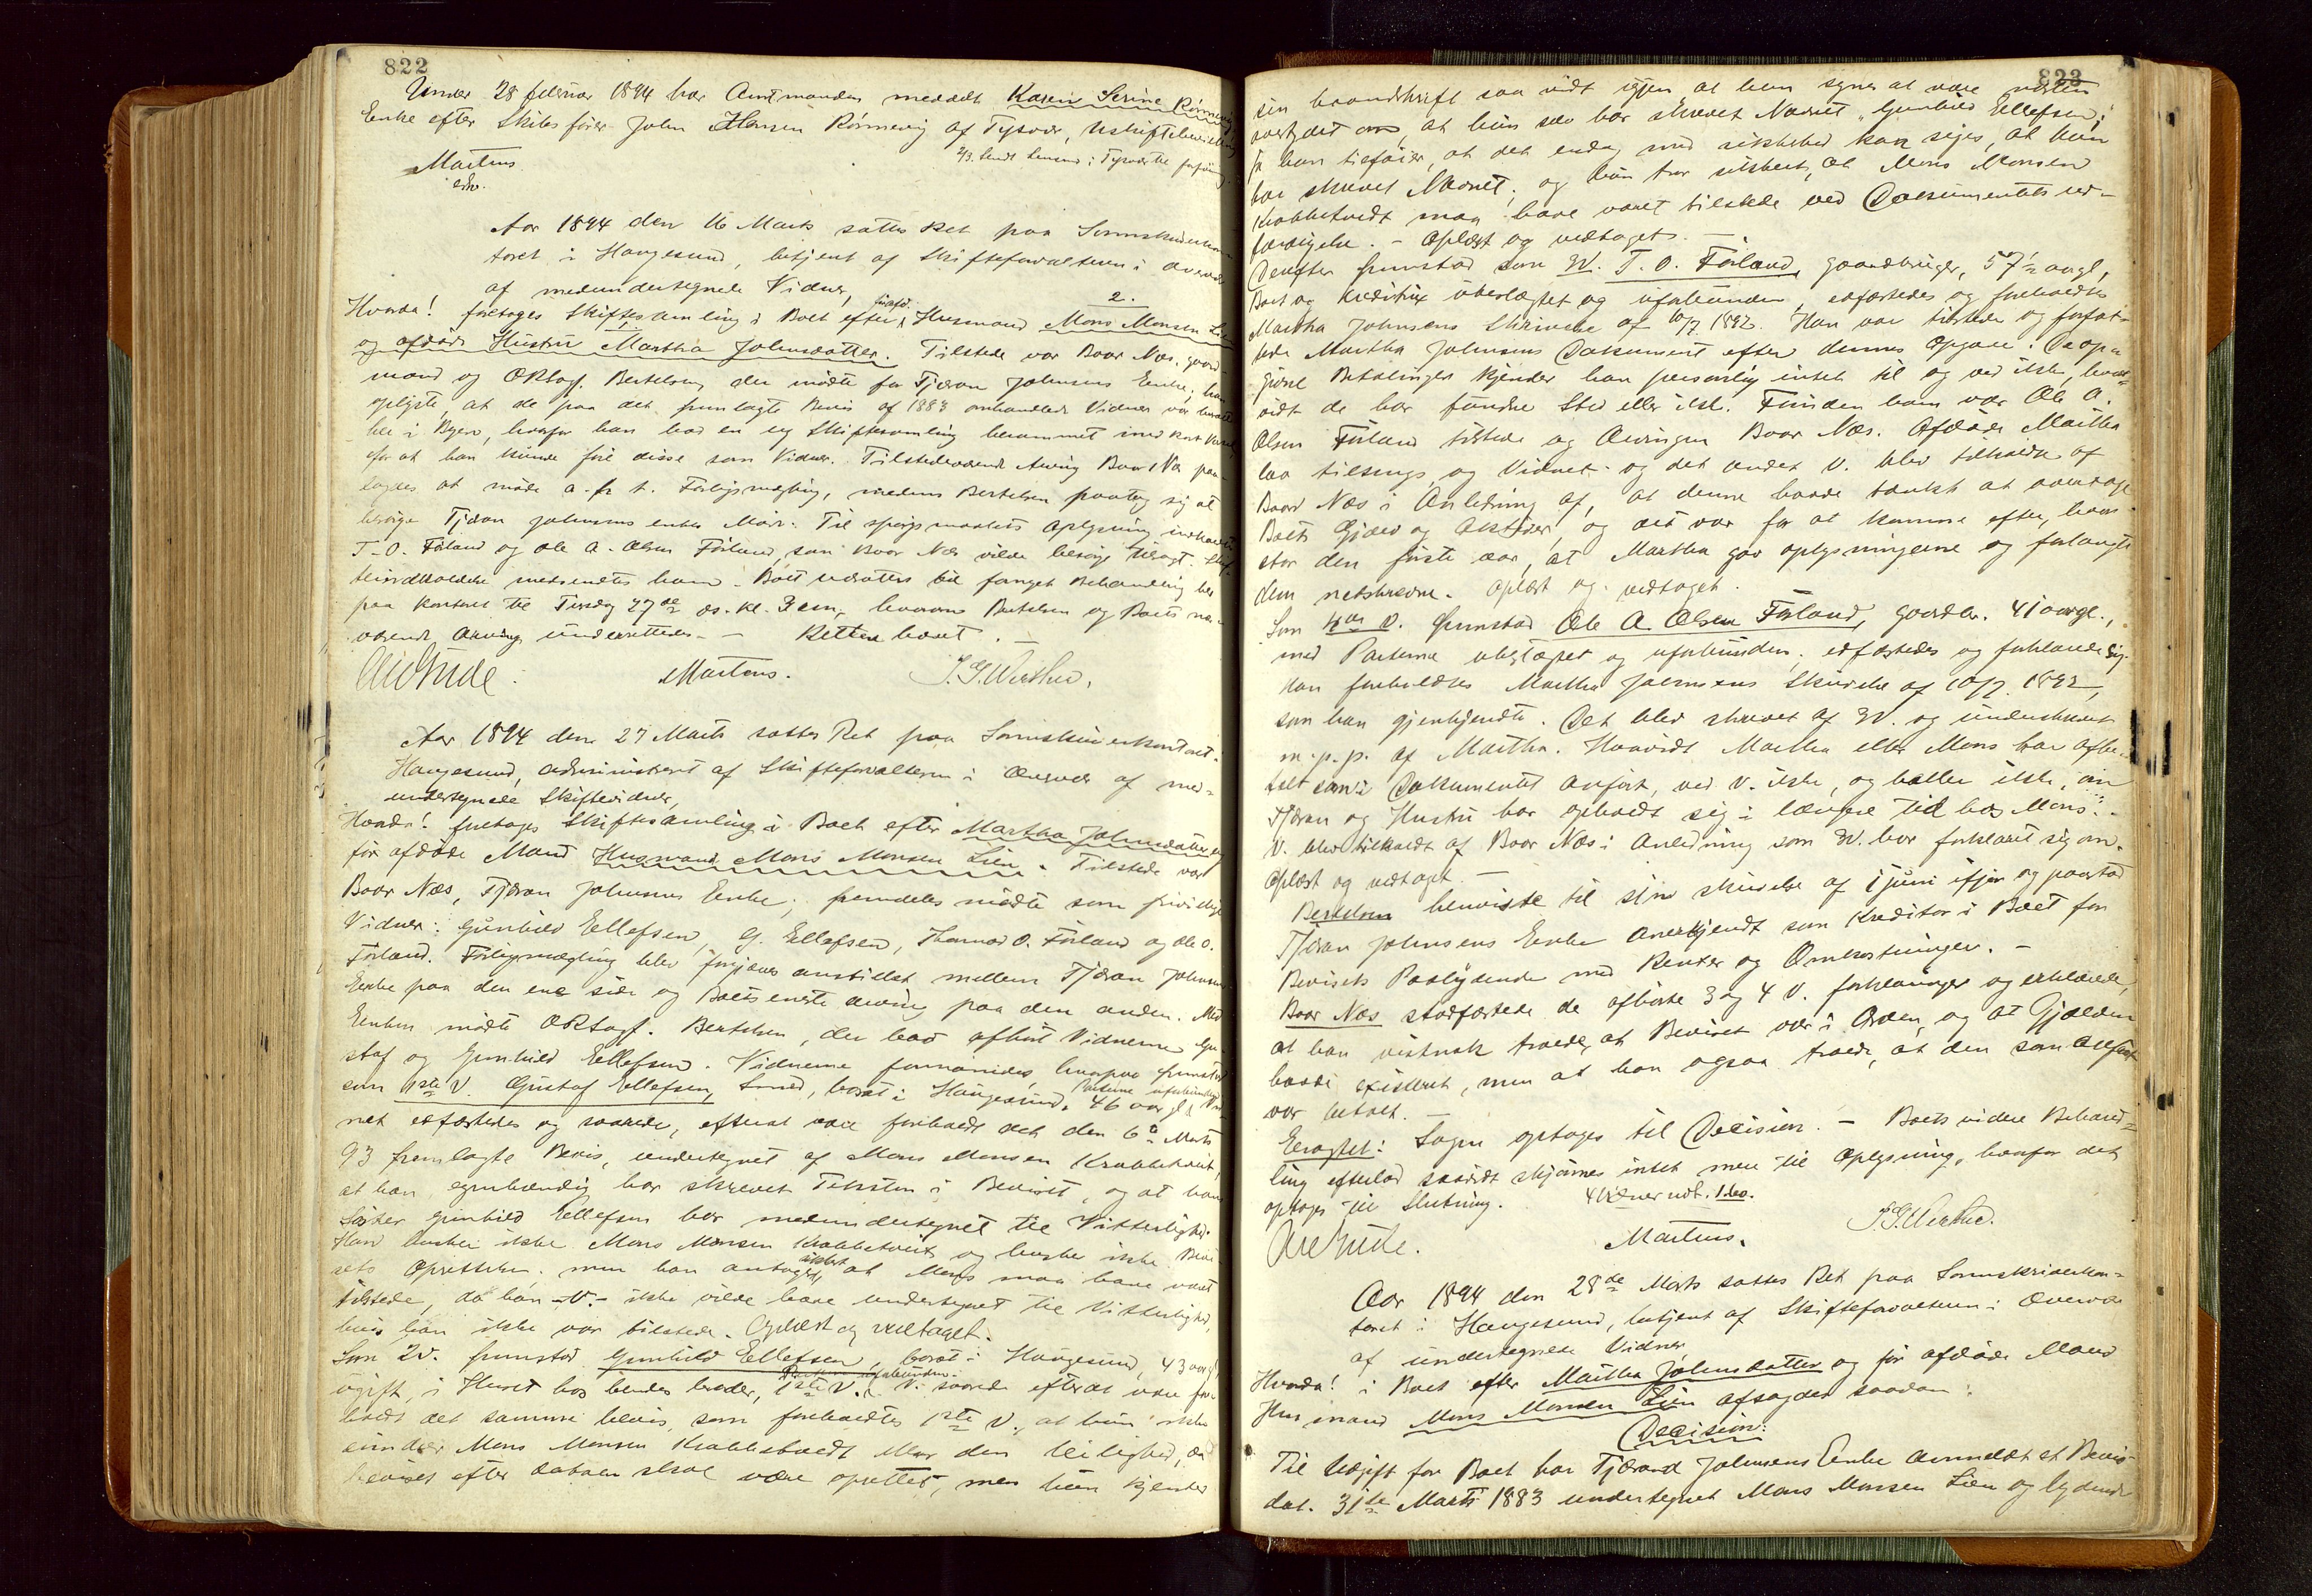 822
Under 28 februar 1894 har Amtmanden meddelt Karen Serine Rønnevig
Enke efter Skibsfører John Hansen Rønnevig af Tysvær, Uskiftebevilling
2/3 sendt Lensmd i Tysvær
Martens
Aar 1894 den 16 Marts sattes Ret paa Sorenskriverkon-
toret i Haugesund, betjent af Skifteforvalteren i Overvær
af medundertegnede Vidner,
2.
Hvorda! foretoges Skiftesamling i Boet efter Husmand Mons Monsen Lie
og afdøde Hustru Martha Johnsdatter. Tilstede var Baar Næs, gaard-
mand og ORsagf. Bertelsen, der mødte for Tjæran Johnsens Enke; han
oplyste, at de paa det fremlagte Bevis af 1883 omhandlede Vidner var
her i Byen, hvorfor han bad en ny Skiftesamling berammet med kort Varsel
for at han kunde føre disse som Vidner. Tilstedeværende Arving Baar Næs paa-
lagdes at møde a. fr. t. Forligsmægling, medens Bertelsen paatog sig at
besørge Tjæran Johnsens enkes Møde. Til spørgsmaalets Oplysning indkaldes
T. O. Førland og Ole A. Olsen Førland, som Baar Næs vilde besørge tilsagt.
medsendtes ham. Boet udsattes til forsat Behandling her
paa Kontoret til Tirsdag 27de ds. Kl. 3 em, hvorom Bertelsen og Boets nær-
værende Arving underrettedes. — Retten hævet. —
Martens. J. G. Werther.
Aar 1894 den 27 Marts sattes Ret paa Sorenskriverkontoret i
Haugesund, administreret af Skifteforvalteren i Overvær af med-
undertegnede Skiftevidner,
Hvorda! foretoges Skiftesamling i Boet efter Martha Johnsdatter og
før afdøde Mand Husmand Mons Monsen Lien. Tilstede var
Baar Næs, Tjæran Johnsens Enke; fremdeles mødte som frivillige
Vidner: Gunhild Ellefsen, G. Ellefsen, Thomas O. Førland og Ole O.
Førland. Forligsmægling blev forgjæves anstillet mellem Tjæran Johnsens
Enke paa den ene side og Boets eneste arving paa den anden. Med
Enken mødte ORsagf. Bertelsen, der bad afhørt Vidnerne Gu-
staf og Gunhild Ellefsen. Vidnerne formanedes, hvorpaa fremstod
som 1ste V. Gustaf Ellefsen, Smed, bosat i Haugesund, 46 aar gl, Parterne uforbunden Vid-
net edfæstedes og svarede, efterat være foreholdt det den 6te Marts
93 fremlagte Bevis, undertegnet af Mons Monsen Krabbetveit,
at han egenhændig har skrevet Teksten i Beviset, og at hans
Søster Gunhild Ellefsen har medundertegnet til Vitterlighed.
Han husker ikke Mons Monsen Krabbetveit og husker ikke Bevi-
sets Oprettelse; men han antager sikkert at Mons maa have været
tilstede, da han -V.- ikke vilde have undertegnet til Vitterlighed,
hvis han ikke var tilstede. Oplæst og vedtaget.
Som 2V. fremstod Gunhild Ellefsen, bosat i Haugesund, 43 aar gl,
ugift, i Huset hos hendes broder, 1ste V., Parterne uforbunden. V. svarede efterat være fore-
holdt det samme bevis, som foreholdtes 1ste V., at hun ikke
erindrer Mons Monsen Krabbetvedt eller den leilighed, da
beviset efter datoen skal være oprettet, men hun kjender
823
sin haandskrift saa vidt igjen at hun synes at være næsten
overtydet om, at hun selv har skrevet Navnet "Gunhild Ellefsen";
ja hun tilføier, at det endog med sikkerhed kan siges, at hun
har skrevet Navnet; og hun tror sikkert, at Mons Monsen
Krabbetvedt maa have været tilstede ved Documentets ud-
færdigelse. – Oplæst og vedtaget. –
Derefter fremstod som 3V. T. O. Førland, gaardbruger, 57½ aargl,
Boet og Kreditrix ubeslægtet og uforbunden, edfæstedes og foreholdtes
Martha Johnsens Skrivelse af 10/7 1892. Han var tilstede og forfat-
tede Martha Johnsens Dokument efter dennes Opgave. De opa
givne Betalinger kjender han personlig intet til og ved ikke, hvor-
vidt de har fundet Sted eller ikke. Foruden ham var Ole A.
Olsen Førland tilstede og Arvingen Baar Næs. Afdøde Martha
laa tilsengs, og Vidnet og det andet V. blev tilkaldt af
Baar Næs i Anledning af, at denne havde tænkt at overtage
Boets Gjæld og Aktiver, og det var for at komme efter, hvor
stor den første var, at Martha gav oplysningerne og forlangte
dem nedskrevne. Oplæst og vedtaget.
Som 4de V. fremstod Ole A. Olsen Førland, gaardbr. 41 aargl.,
med Parterne ubeslægtet og uforbunden, edfæstedes og forklarede sig.
Han foreholdtes Martha Johnsens Skrivelse af 10/7 1892,
som han gjenkjendte. Det blev skrevet af 3V. og underskrevet
m. p. p. af Martha. Hvorvidt Martha eller Mons har afbe-
talt som i Dokumentet anført, ved V. ikke, og heller ikke, om
Tjæran og Hustru har opholdt sig i længere Tid hos Mons. –
V. blev tilkaldt af Baar Næs i Anledning som 3V. har forklaret sig om.
Oplæst og vedtaget. —
Bertelsen henviste til sin skrivelse af 1 juni ifjor og paastod
Tjæran Johnsens Enke anerkjendt som Kreditor i Boet for
Bevisets Paalydende med Renter og Omkostninger. –
Baar Næs stadfæstede de afhørte 3 og 4 V. forklaringer og erklærede,
at han vistnok troede, at Beviset var i Orden, og at Gjælden
havde existeret, men at han ogsaa troede, at den som anført
var betalt. —
Eragtet: Sagen optages til Decision. – Boets videre Behand-
ling efterlod saavidt skjønnes intet mere til Oplysning, hvorfor det
optoges til Slutning. 4 Vidner udt. 1 kr.
Martens. J. G. Werther.
Aar 1894 den 28de Marts sattes Ret paa Sorenskriverkon-
toret i Haugesund, betjent af Skifteforvalteren i Overvær
af undertegnede Vidner,
Hvorda! i Boet efter Martha Johnsdatter og før afdøde Mand
Husmand Mons Monsen Lien afsagdes saadan
Decision:
Til Udgift for Boet har Tjærand Johnsens Enke anmeldt et Bevis
dat. 31te Marts 1883 undertegnet Mons Monsen Lien og lydende